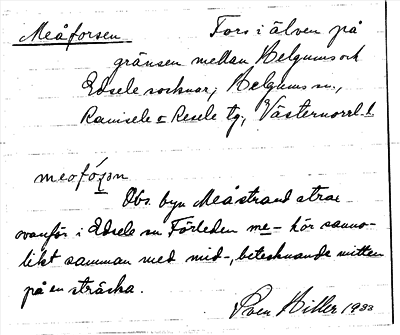 Meåforsen Fors i älven på
gränsen mellan Helgums och
Edsele socknar; Helgums sn.,
Ramsele o Resele tg., Västernorrl. l.
meofó
Obs. byn Meåstrand strax
ovanför i Edsele sn Förleden me- hör sanno-
likt samman med mid-, betecknande mitten
på en sträcka.
Hiller 1933